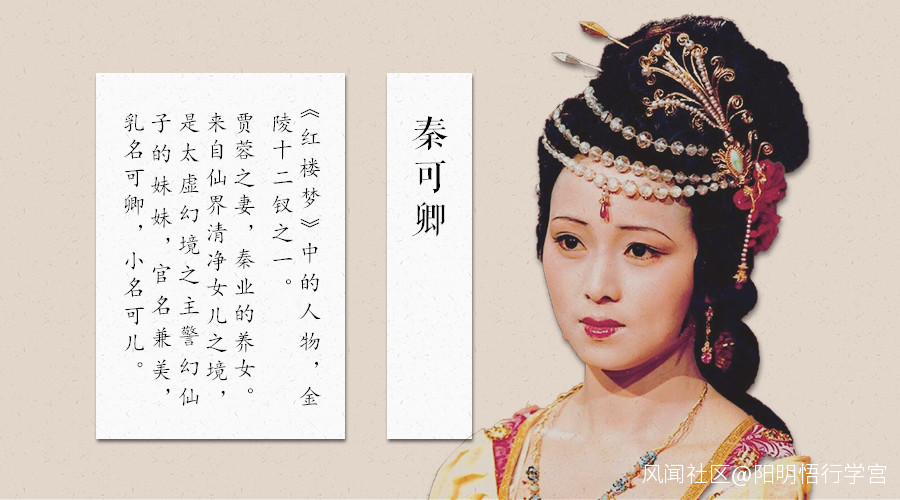 秦可卿
《红楼梦》中的人物，金
陵十二钗之一。
贾蓉之妻，秦业的养女。
来自仙界清净女儿之境，
是太虚幻境之主警幻仙
子的妹妹，官名兼美，
乳名可卿，小名可儿。
风闻社区@阳明悟行学宫